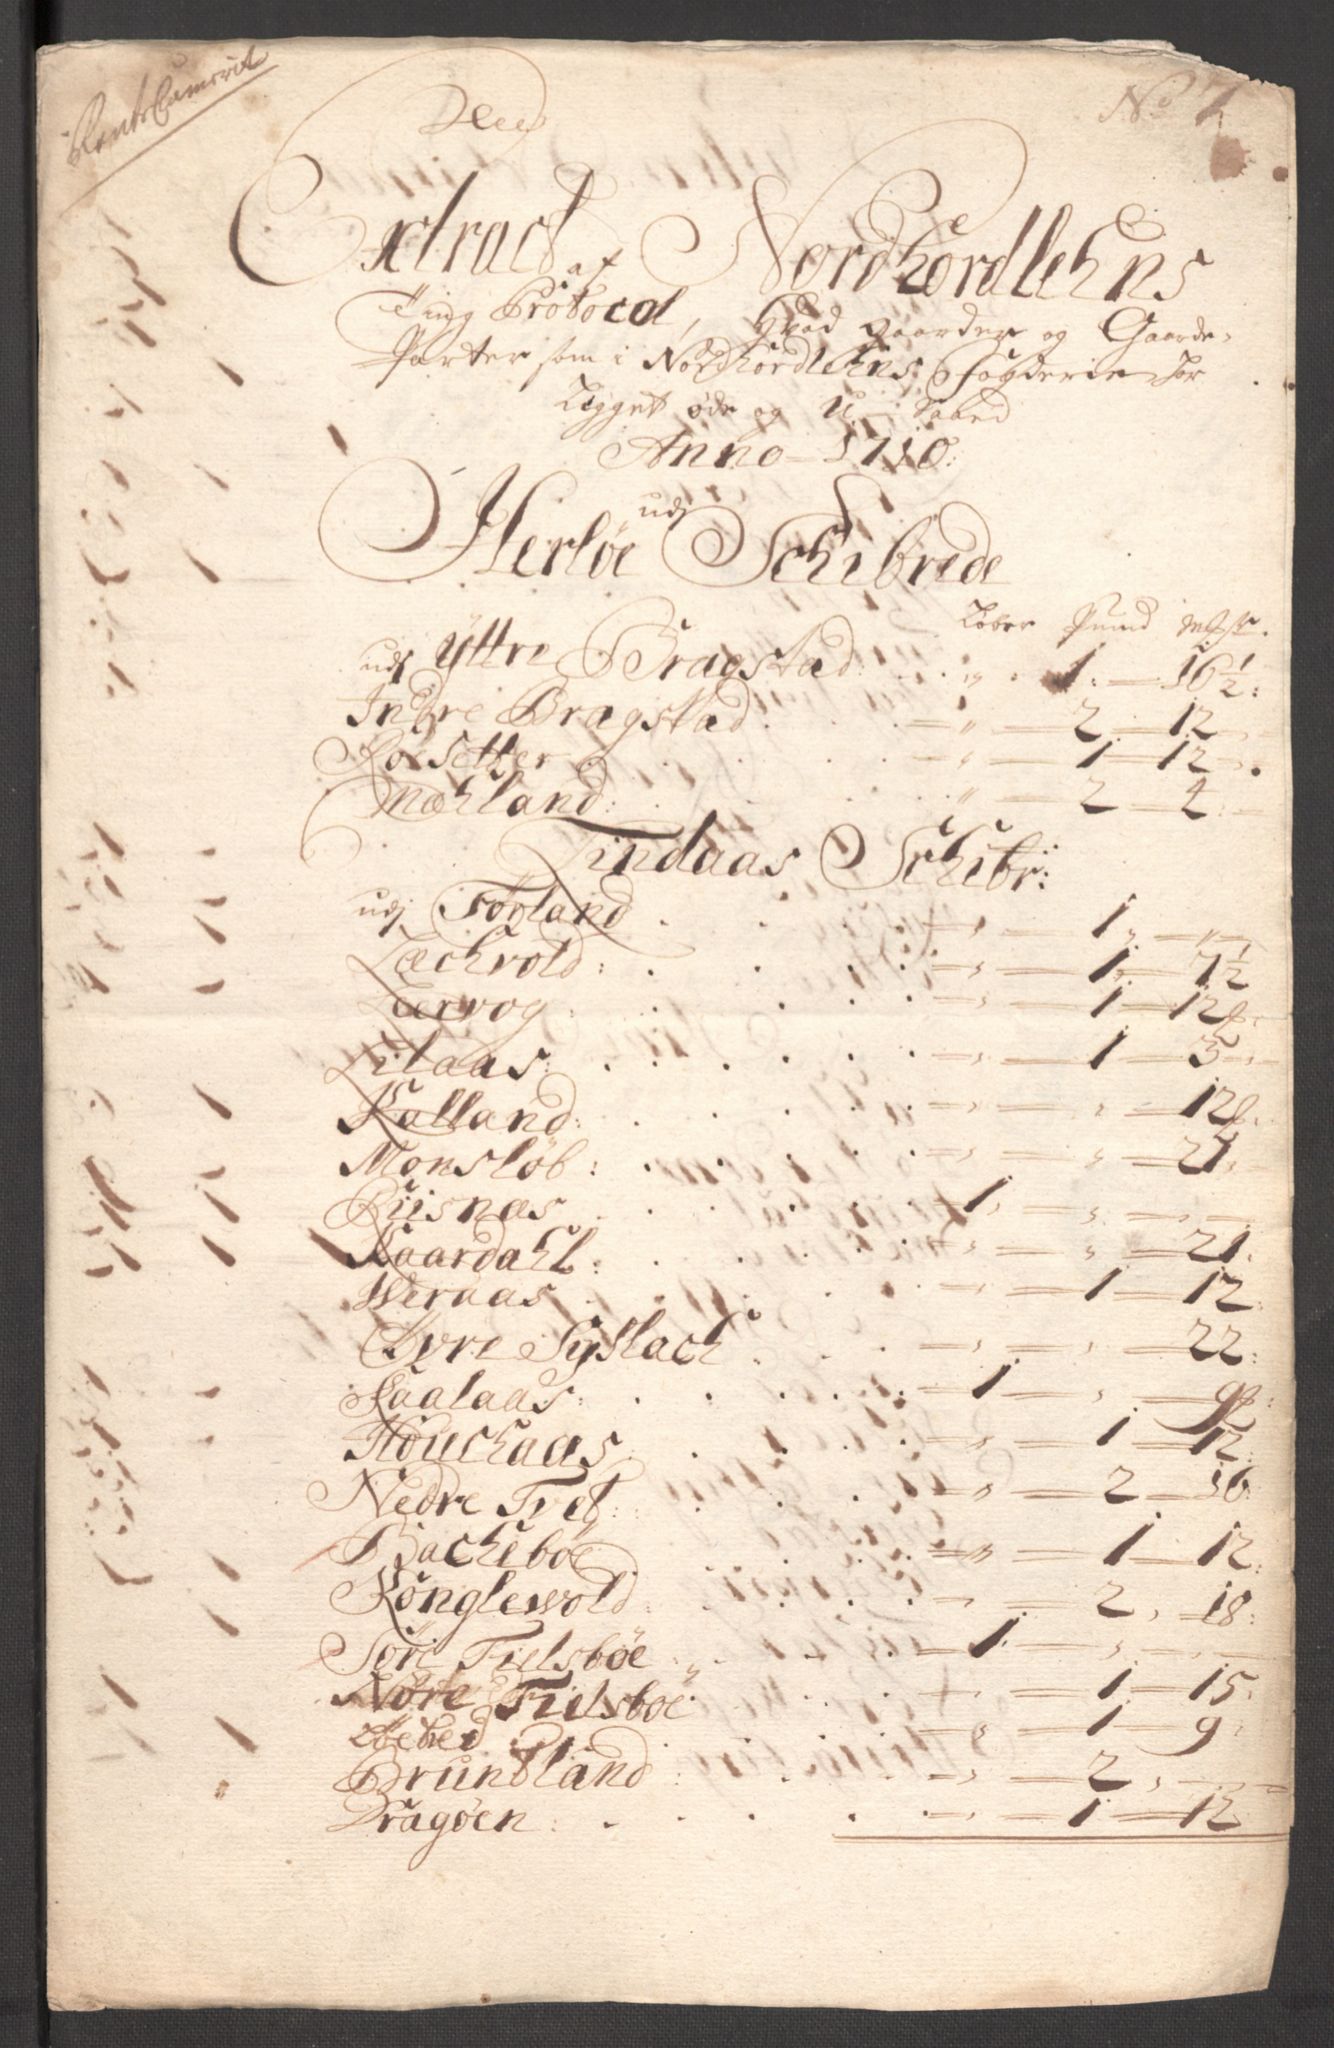 RenteCammerit
No 7
Extract af Nordhordlehns
Ting Protocol, Hvad gaarder og Gaarde-
Parter som i Nordhordlehns Fogderie har
Ligget øde og U-saaed
Anno 1710:
udj
Herløe Schibrede
Løber Pund mrk
udj Yttre Bragstad . . „ 1 — 16½:
Indre Bragstad . — „ — 2 — 12
Roesetter . . — „ — 1 — 12
Mæhland: . . „ — 2 — 2
Lindaas Schibr:
udj Fogland . . — „ — 1 „ — „
Læchvold: . . — „ — 1 — 7½
Leervog . . — „ — 1 — 12
Lilaas: . . — „ — 1 — 3
Kalland: . . — „ — „ — 12
Monsløb: . . — „ — „ — 21
Riisnæs . . — 1 — „ —
Kaardahl: . . — „ — „ — 21
Weraas . . — „ — 1 — 12
Øvre Syslach . . — „ — „ — 22
Faalaas: . . — 1 — „ — 9
Houchaas . . — „ — 1 — 12
Nedre Tvet: . . — „ — 2 — 16
Bachebøe . . — „ — 1 — 12
Konglevold . . — „ — 2 — 18
Søre Fielsbøe . . — 1 — „ —
Nore Fielsbøe . . — „ — 1 — 15
— „ — 1 — 9
Brundland . . — „ — 2 „ —
Dragøen: . . — „ — 1 — 12